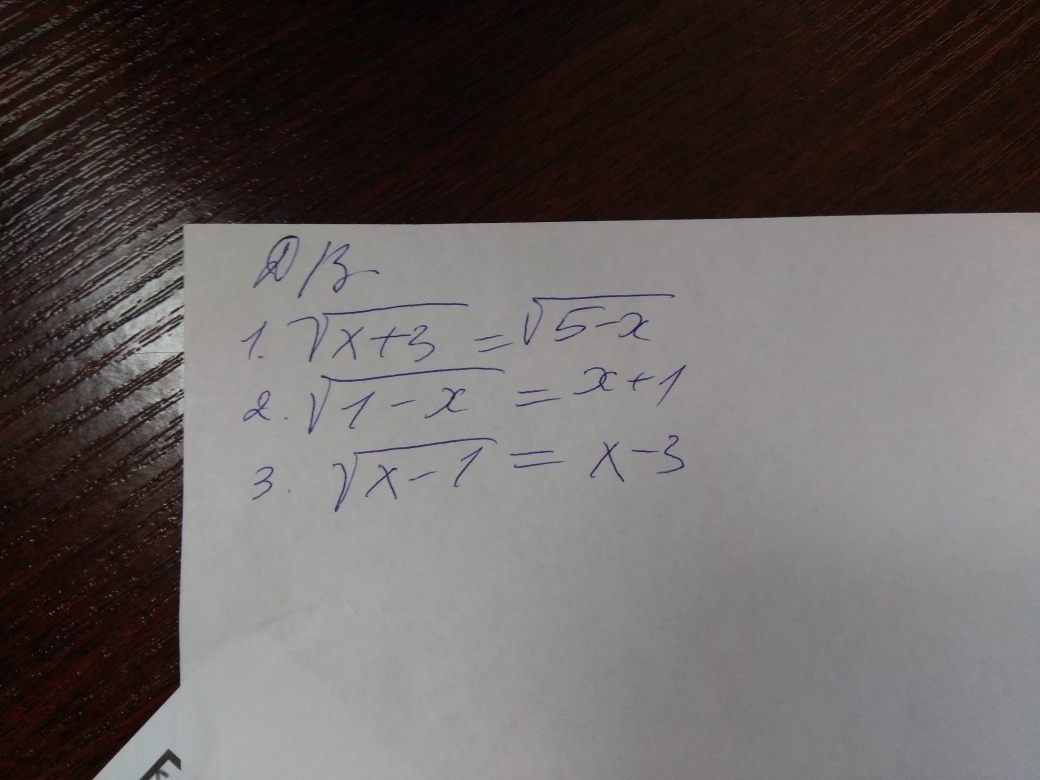 Д/з
1. √x+3 = √5-x
2. √1-x = x+1
3. √x-1 = x-3